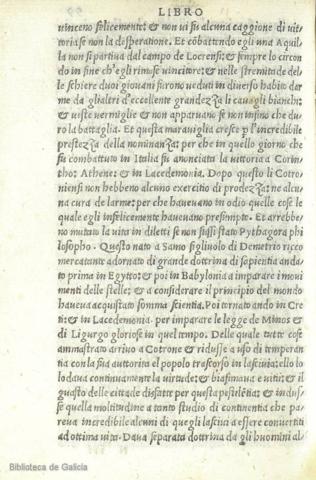 LIBRO
uinceno felicemente: & non ui fu alcuna caggione di uit-
toria se non la desperatione. Et cōbattendo egli una Aqui
la non si partiua dal campo de Locrensi: & sempre lo circon
do in fine ch'egli rimase uincitore: & nelle stremita de del
le schiere duoi giouani furono ueduti in diuerso habito dar
me da gl'altri d'eccellente grandezza li caualli bianchi:
& ueste uermiglie & non apparuano se non insino che du-
ro la battaglia. Et questa marauiglia cresce p l'incredibile
prestezza della nominanza: per che in quello giorno che
fu combattuto in Italia fu anonciata la uittoria a Corin-
tho: Athene: & in Lacedemonia. Dopo questo li Cotro-
niensi non hebbeno alcuno exercitio di prodezza: ne alcu-
na cura de larme: per che haueuano in odio quelle cose le
quale egli infelicemente haueuano presompte. Et arrebbe
no mutato la uita in diletti se non fussi stato Pythagora phi
losopho. Questo nato a Samo figliuolo di Demetrio ricco
mercatante adornato di grande dottrina di sapientia anda-
to prima in Egytto: & poi in Babylonia a imparare i moui
menti delle stelle: & a considerare il principio del mondo
haueua acquistato somma scientia. Poi tornato ando in Cre
ti: & in Lacedemonia. per imparare le legge de Minos &
di Ligurgo gloriose in quel tempo. Delle quale tutte cose
ammastrato arriuo a Cotrone & ridusse a uso di temperan
tia con la sua autorita el popolo trascorso in lasciuia: ello lo
lodaua continuamente la uirtude: & biasimaua e uitii: & il
guasto delle cittade disfatte per questa pestilētia: & indus-
se quella moltitudine a tanto studio di continentia che pa-
reua incredibile alcuni di quegli lasciui a essere conuertiti
ad ottima uita. Daua separata dottrina da gli huomini al-
Biblioteca de Galicia